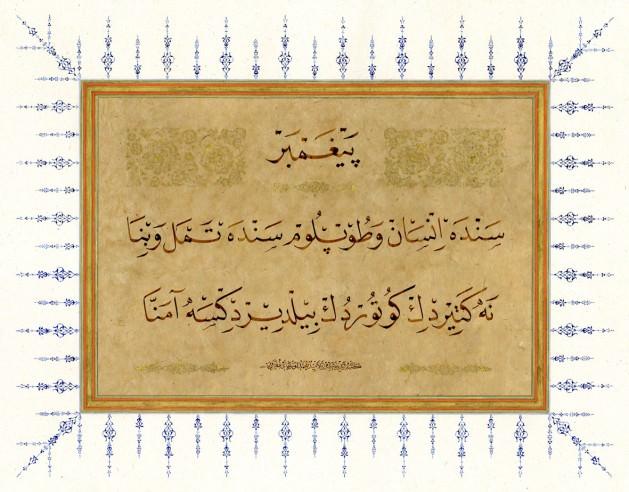 پَيْغَمْبَرْ
سَنْدَه اِنْسَانْ وَطُوپْلُومْ سَنْدَه تَمَلْ وَبِنَا
نَه كَتِيرْدِكْ كُوتُورْدُكْ بِيلْدِيرْدِكْسَه آمَنَّا